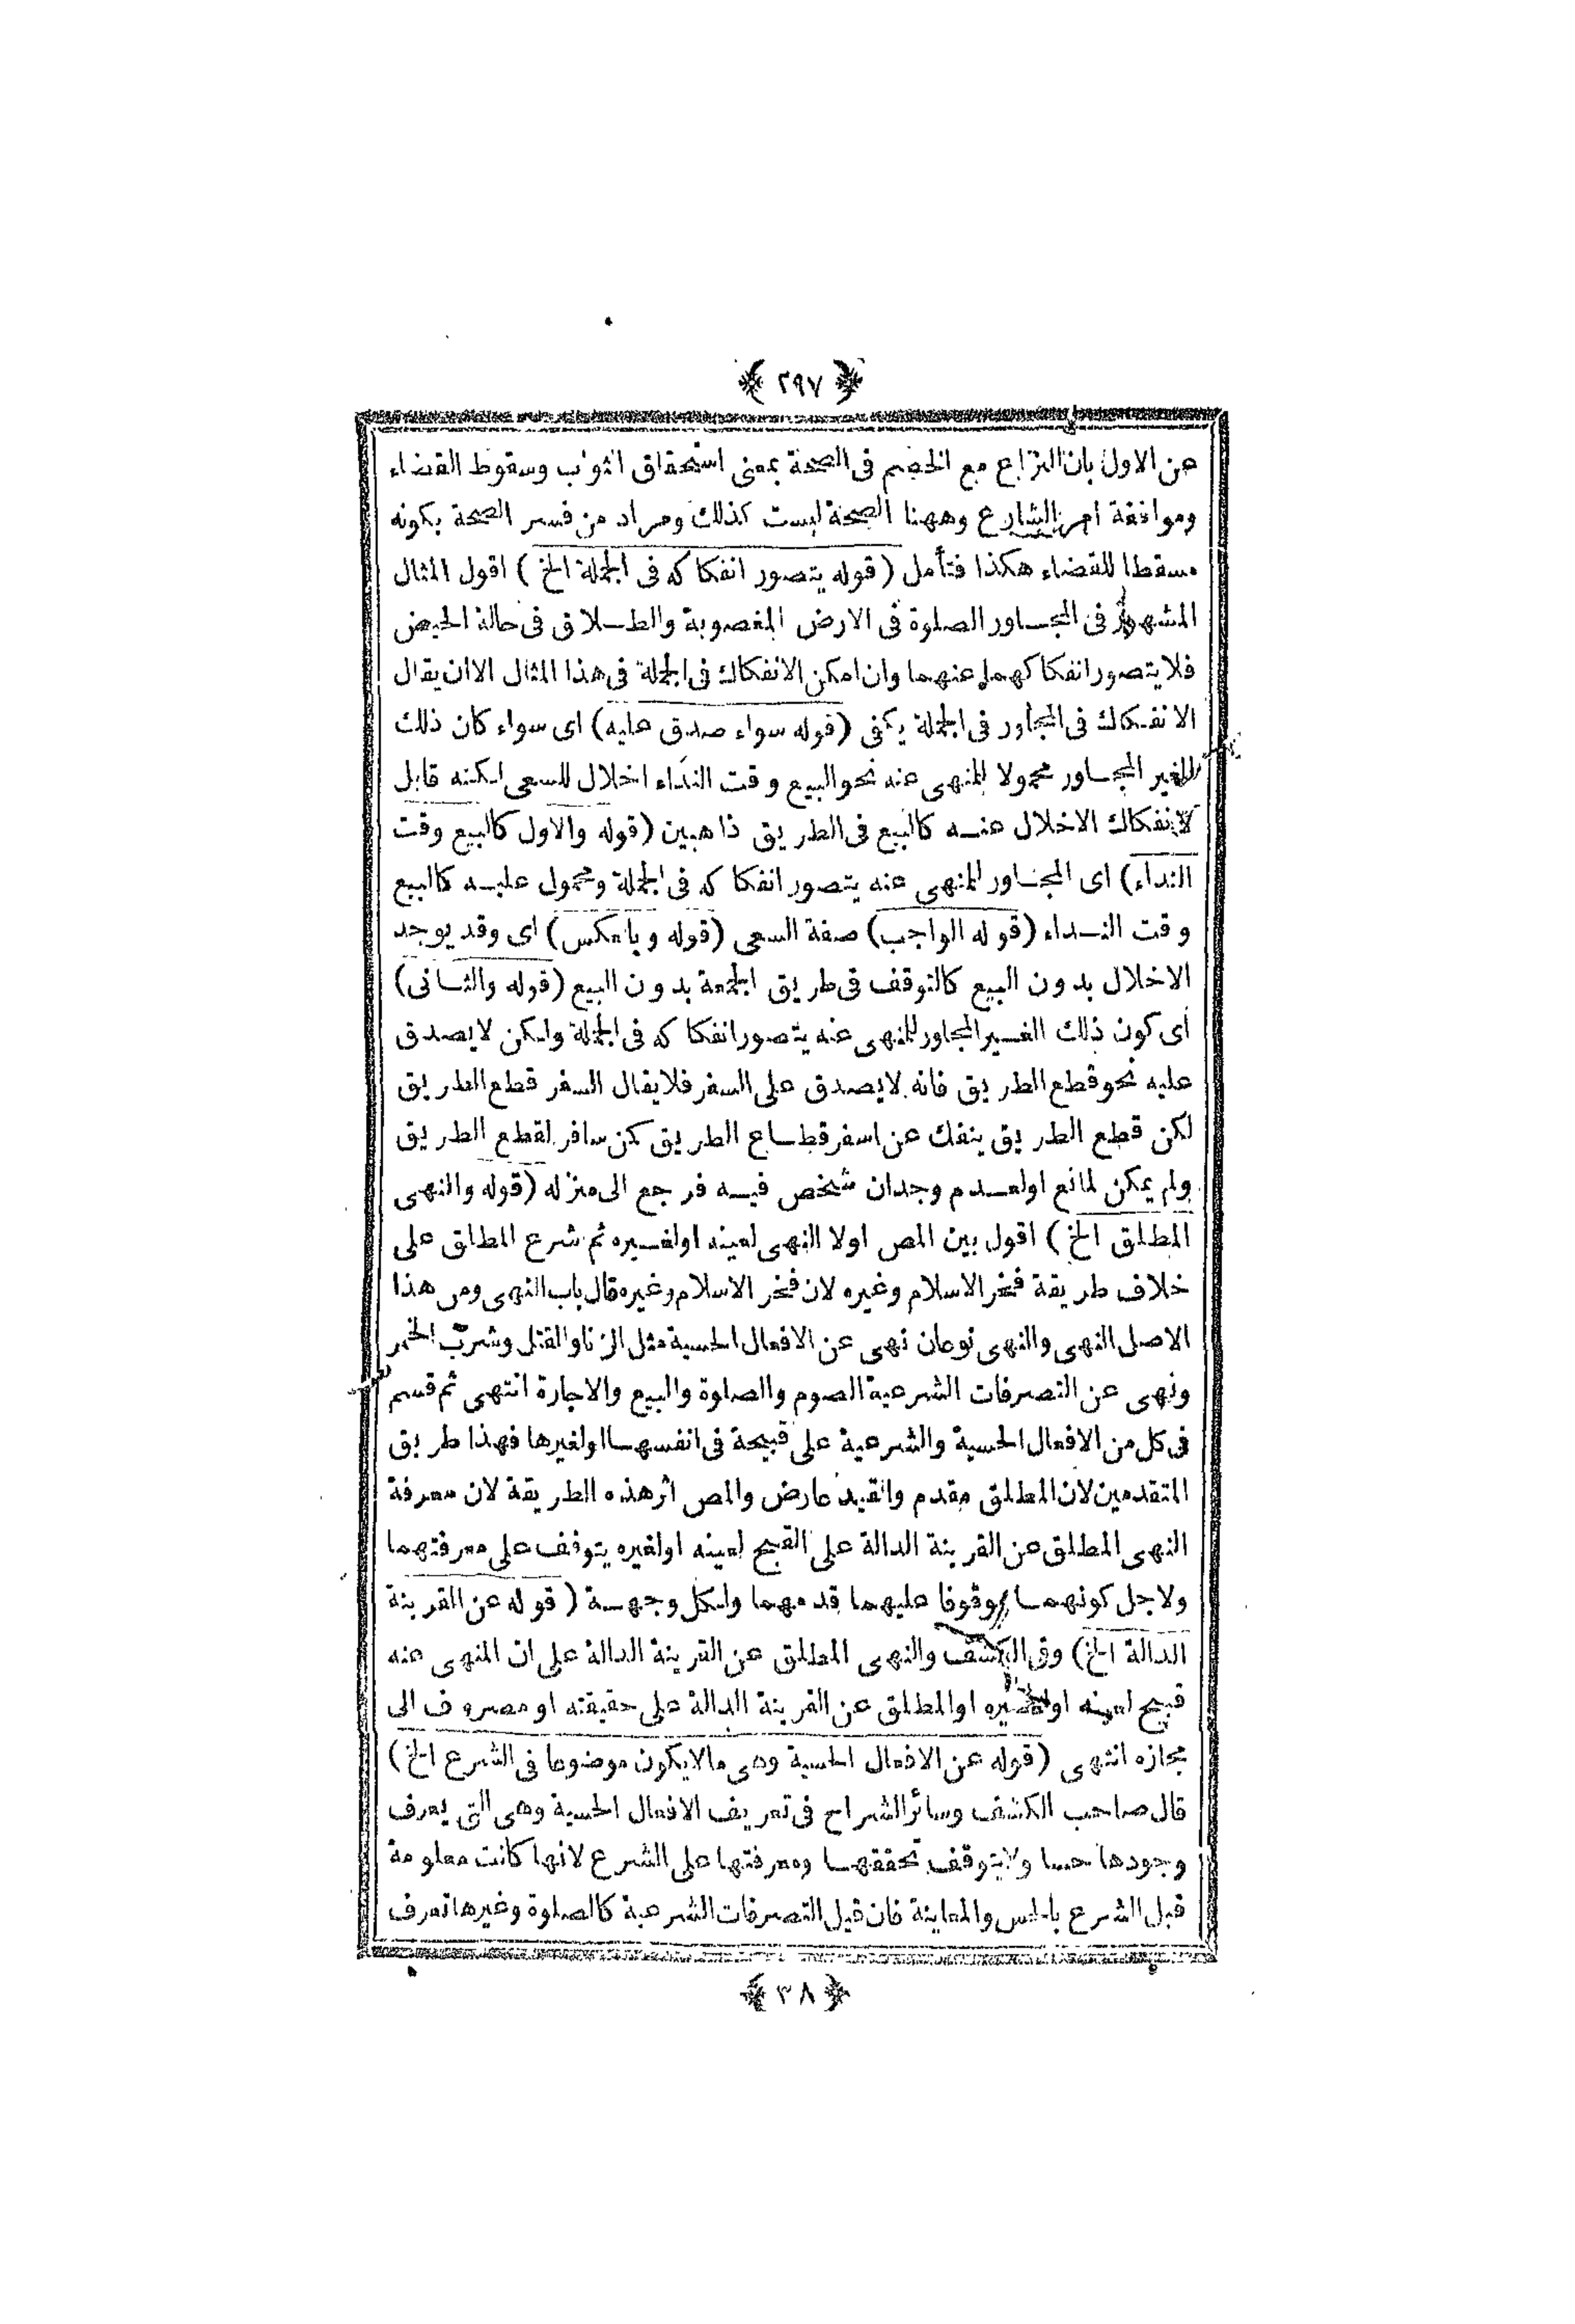 ﴿ ٢٩٧ ﴾
عن الاول بان النزاع مع الخصم فى الصحة بمعنى استحقاق الثواب وسقوط القضاء
وموافقة امر الشارع وههنا الصحة ليست كذلك ومراد من فسر الصحة بكونه
مسقطا للقضاء هكذا فتأمل (قوله يتصور انفكاكه فى الجملة الخ) اقول المثال
المشهور فى المجاور الصلوة فى الارض المغصوبة والطلاق فى حالة الحيض
فلا يتصور انفكاكهما عنهما وان امكن الانفكاك فى الجملة فى هذا المثال الا ان يقال
الانفكاك فى المجاور فى الجملة يكفى (قوله سواء صدق عليه) اى سواء كان ذلك
الغير المجاور محمولا للمنهى عنه نحو البيع وقت النداء اخلال للسعى لكنه قابل
لانفكاك الاخلال عنه كالبيع فى الطريق ذاهبين (قوله والاول كالبيع وقت
النداء) اى المجاور للمنهى عنه يتصور انفكاكه فى الجملة ومحمول عليه كالبيع
وقت النداء (قوله الواجب) صفة السعى (قوله وبالعكس) اى وقد يوجد
الاخلال بدون البيع كالتوقف فى طريق الجمعة بدون البيع (قوله والثانى)
اى كون ذلك الغير المجاور للمنهى عنه يتصور انفكاكه فى الجملة ولكن لا يصدق
عليه نحو قطع الطريق فانه لا يصدق على السفر فلا يقال السفر قطع الطريق
لكن قطع الطريق ينفك عن اسفر قطاع الطريق كمن سافر لقطع الطريق
ولم يمكن لمانع اولعدم وجدان شخص فيه فرجع الى منزله (قوله والنهى
المطلق الخ) اقول بين المص اولا النهى لعينه اولغيره ثم شرع المطلق على
خلاف طريقة فخر الاسلام وغيره لان فخر الاسلام وغيره قال باب النهى ومن هذا
الاصل النهى والنهى نوعان نهى عن الافعال الحسية مثل الزنا والقتل وشرب الخمر
ونهى عن التصرفات الشرعية الصوم والصلوة والبيع والاجارة انتهى ثم قسم
فى كل من الافعال الحسية والشرعية على قبيحة فى انفسها اولغيرها فهذا طريق
المتقدمين لان المطلق مقدم والقيد عارض والمص اثر هذه الطريقة لان معرفة
النهى المطلق عن القرينة الدالة على القبح لعينه اولغيره يتوقف على معرفتهما
ولاجل كونهما موقوفا عليهما قدمهما ولكل وجهة (قوله عن القرينة
الدالة الخ) وفى الكشف والنهى المطلق عن القرينة الدالة على ان المنهى عنه
قبيح لعينه اولغيره اوالمطلق عن القرينة الدالة على حقيقته او مصروف الى
مجازه انتهى (قوله عن الافعال الحسية وهى مالا يكون موضوعا فى الشرع الخ)
قال صاحب الكشف وسائر الشراح فى تعريف الافعال الحسية وهى التى يعرف
وجودها حسا ولا يتوقف تحققها ومعرفتها على الشرع لانها كانت معلومة
قبل الشرع بالحس والمعاينة فان قيل التصرفات الشرعية كالصلوة وغيرها تعرف
﴿ ٣٨ ﴾